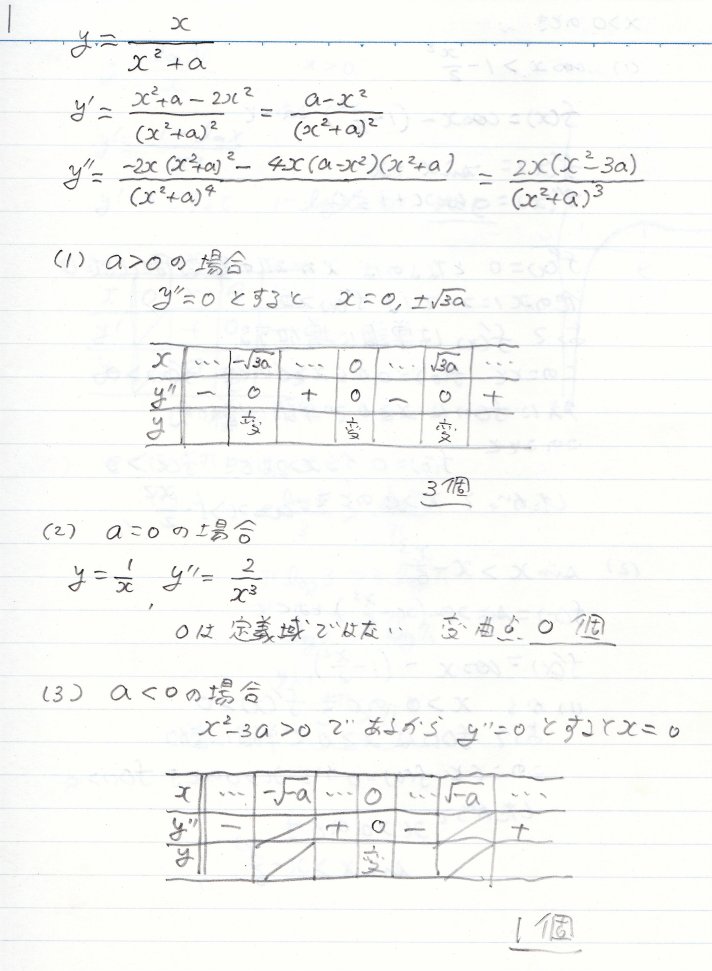 1
y = x/(x²+a)
y' = (x²+a-2x²)/(x²+a)² = (a-x²)/(x²+a)²
y'' = (-2x(x²+a)² - 4x(a-x²)(x²+a))/(x²+a)⁴ = 2x(x²-3a)/(x²+a)³
(1) a>0の場合
y''=0とすると x=0, ±√3a
x … -√3a … 0 … √3a …
y'' - 0 + 0 - 0 +
y 変 変 変
3個
(2) a=0の場合
y=1/x, y''=2/x³
0は定義域ではない 変曲点 0個
(3) a<0の場合
x²-3a>0であるから y''=0とするとx=0
x … -√-a … 0 … √-a …
y'' - / + 0 - / +
y / 変 /
1個